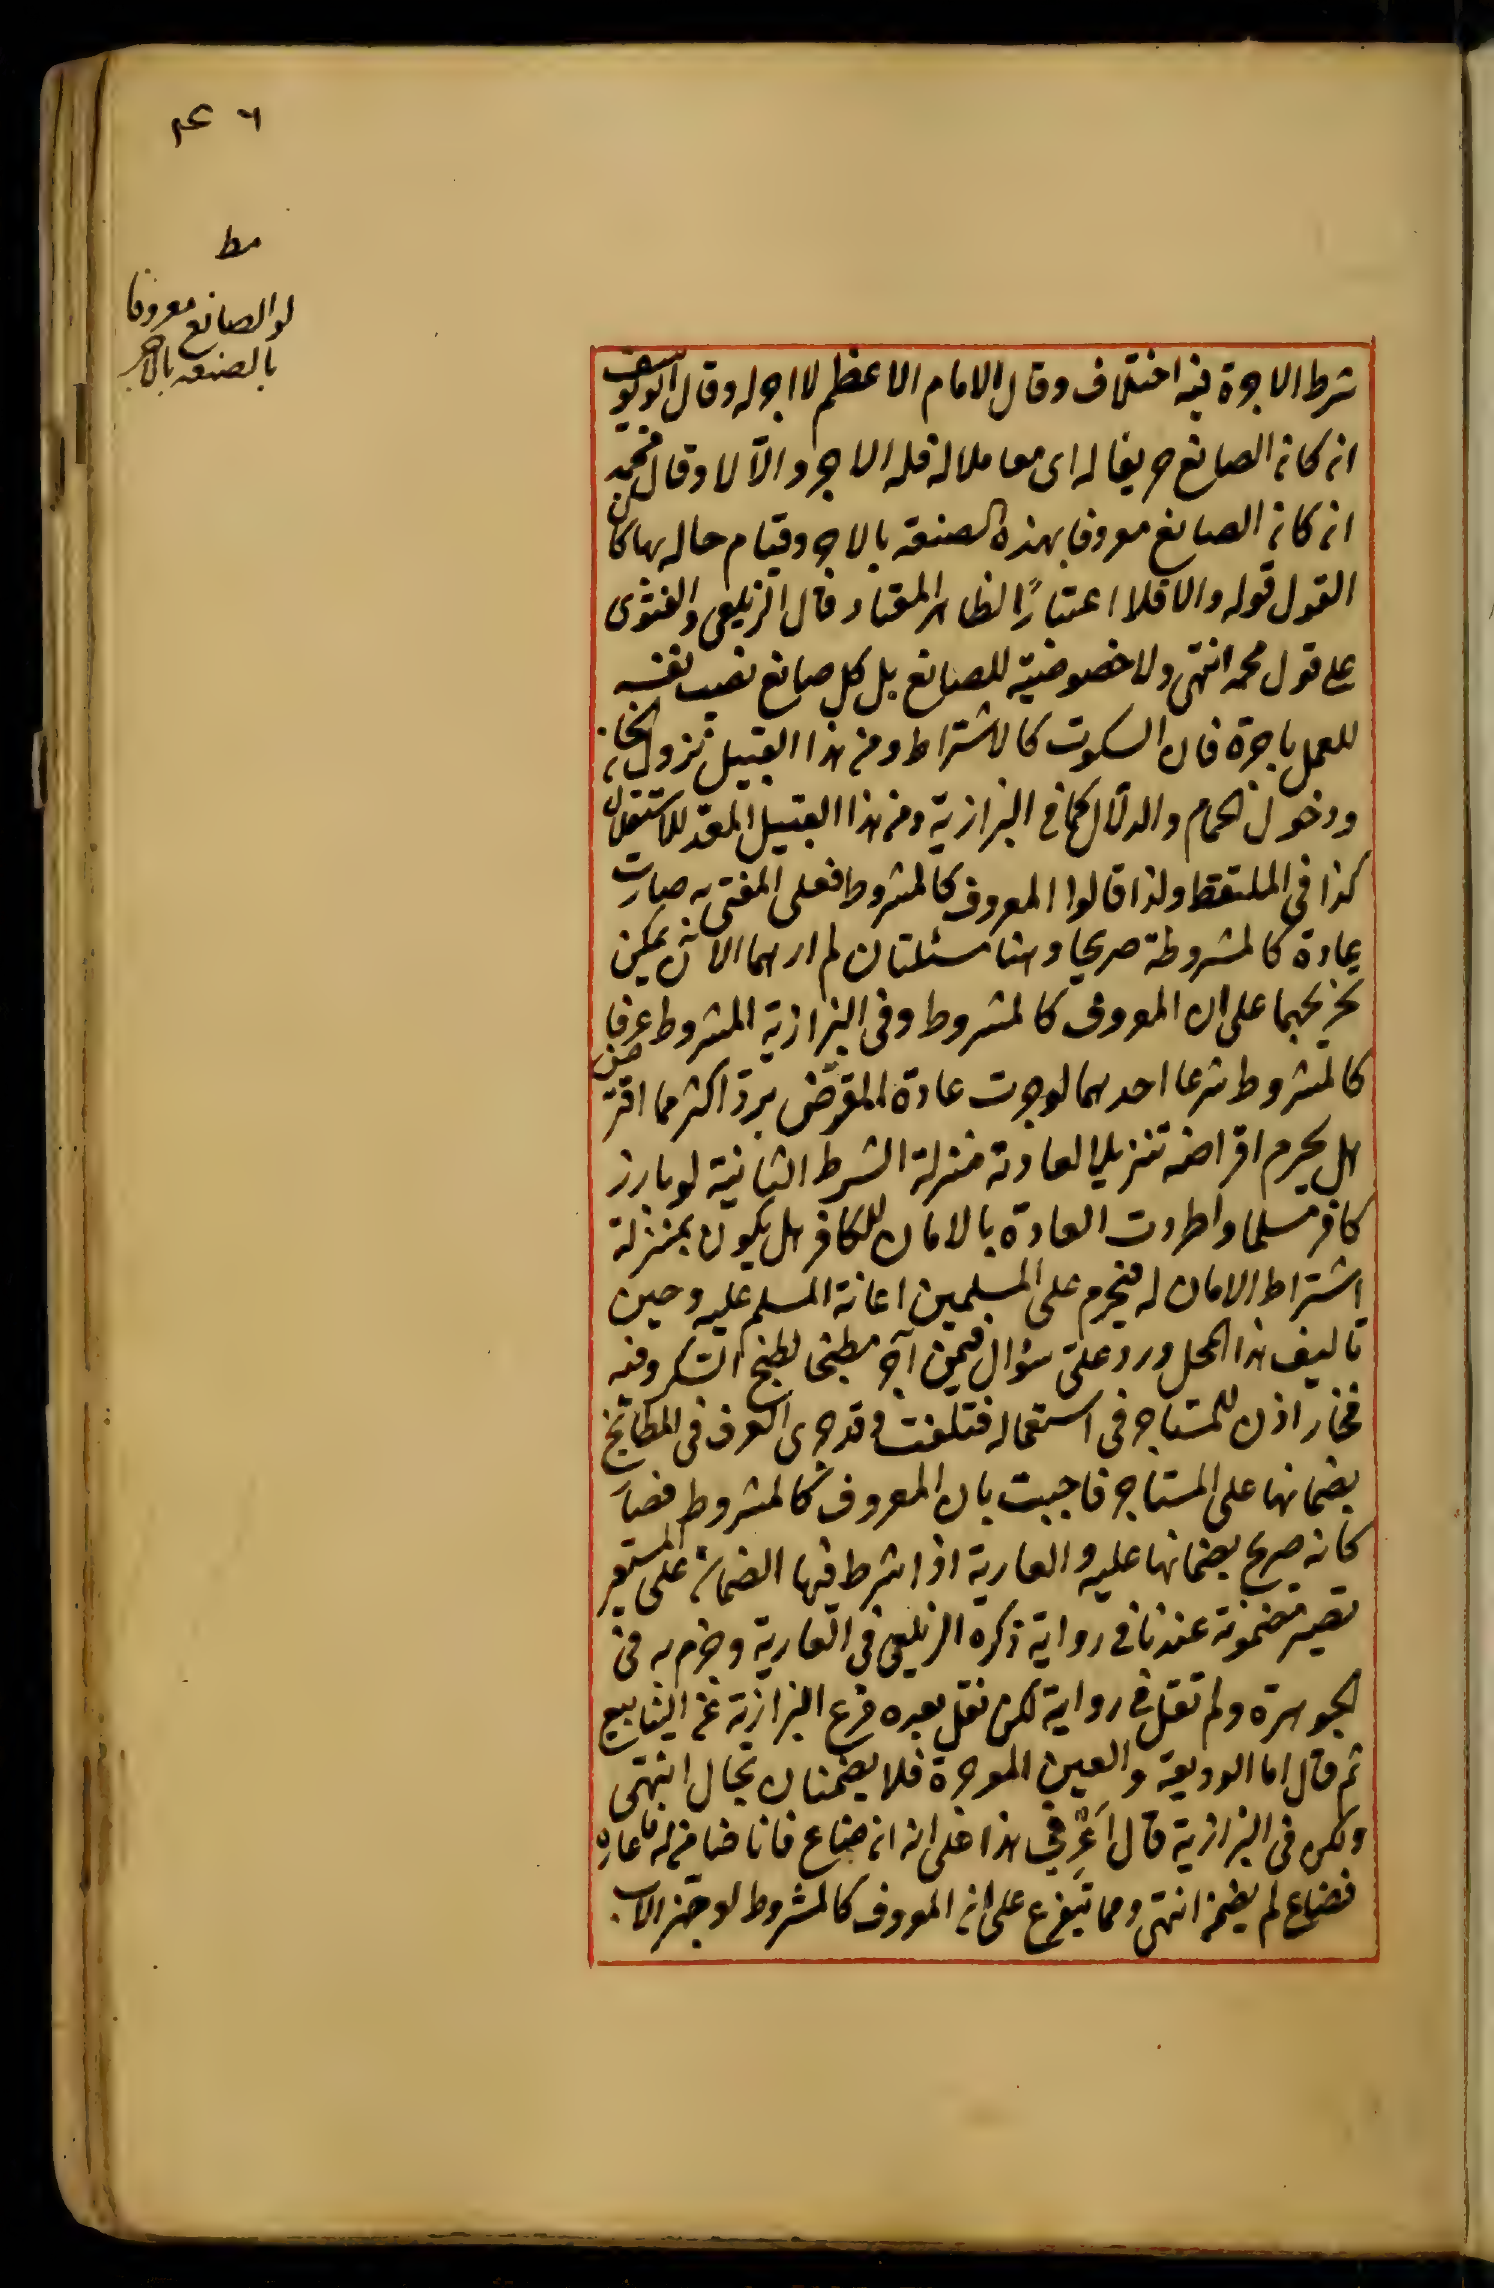 ٤٦
مط
لو الصانع معروفا
بالصنعة بالاجر
شرط الاجرة فيه اختلاف وقال الامام الاعظم لا اجر له وقال ابو يوسف
ان كان الصانع حريفا له اى معاملا له فله الاجر والّا لا وقال محمد
ان كان الصانع معروفا بهذه الصنعة بالاجر وقيام حاله بها كان
القول قوله والا فلا اعتبارًا لظاهر المعتاد قال الزيلعى والفتوى
على قول محمد انتهى ولا خصوصية للصانع بل كل صانع نصب نفسه
للعمل باجرة فان السكوت كالاشتراط ومن هذا القبيل نزول الخان
ودخول الحمام والدلّال كما فى البزازية ومن هذا القبيل المعد للاستغلال
كذا فى الملتقط ولذا قالوا المعروف كالمشروط فعلى المفتى به صارت
عادة كالمشروطة صريحا وهنا مسئلتان لم ارهما الآن يمكن
تخريجهما على ان المعروف كالمشروط وفى البزازية المشروط عرفا
كالمشروط شرعا احدهما لو جرت عادة المقرض برد اكثر مما اقترض
هل يحرم اقراضه تنزيلا لعادته منزلة الشرط الثانية لو بارز
كافر مسلما واطردت العادة بالامان للكافر هل يكون بمنزلة
اشتراط الامان له فيحرم على المسلمين اعانة المسلم عليه وحين
تاليف هذا المحل ورد علىّ سؤال فيمن آجر مطبخا لطبخ السكر وفيه
فخار اذن للمستاجر فى استعماله فتلفت وقد جرى العرف فى المطابخ
بضمانها على المستاجر فاجبت بان المعروف كالمشروط فصار
كانه صرح بضمانها عليه والعارية اذا شرط فيها الضمان على المستعير
تصير مضمونة عندنا فى رواية ذكره الزيلعى فى العارية وجزم به فى
الجوهرة ولم تقل فى رواية لكن نقل بعده فرع البزازية عن الينابيع
ثم قال اما الوديعة والعين الموجرة فلا يضمنان بحال انتهى
ولكن فى البزازية قال اَعِرْنى هذا على انه ان ضاع فانا ضامن له فاعاره
فضاع لم يضمن انتهى ومما تيفرع على ان المعروف كالمشروط لو جهز الاب